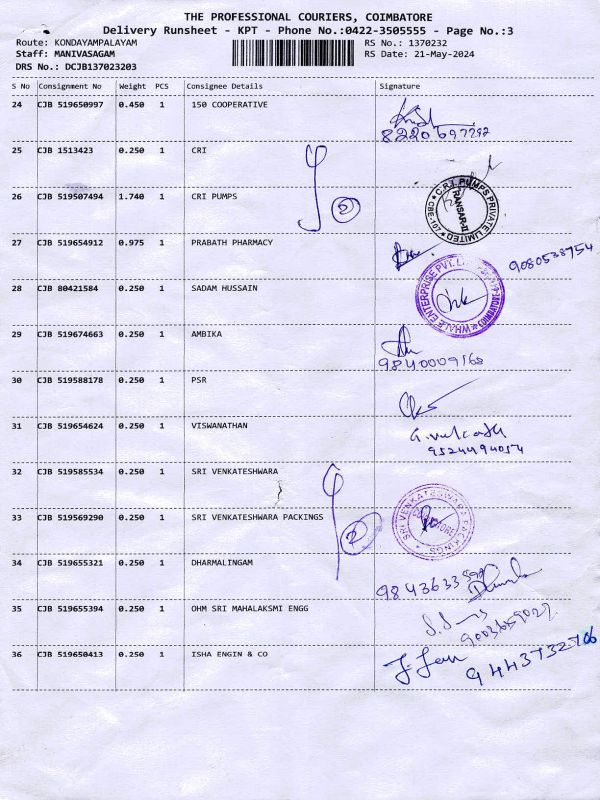 THE PROFESSIONAL COURIERS, COIMBATORE
Delivery Runsheet - KPT - Phone No.:0422-3505555 - Page No.:3
Route: KONDAYAMPALAYAM
RS No.: 1370232
Staff: MANIVASAGAM
RS Date: 21-May-2024
DRS No.: DCJB137023203
S No Consignment No Weight PCS Consignee Details Signature
24 CJB 519650997 0.450 1 150 COOPERATIVE
8220697292
25 CJB 1513423 0.250 1 CRI
26 CJB 519507494 1.740 1 CRI PUMPS
2
C.R.I. PUMPS PRIVATE LIMITED
27 CJB 519654912 0.975 1 PRABATH PHARMACY
9080538754
28 CJB 80421584 0.250 1 SADAM HUSSAIN
WHALE ENTERPRISE PVT. LTD.
29 CJB 519674663 0.250 1 AMBIKA
9840009168
30 CJB 519588178 0.250 1 PSR
31 CJB 519654624 0.250 1 VISWANATHAN
9524494054
32 CJB 519585534 0.250 1 SRI VENKATESHWARA
33 CJB 519569290 0.250 1 SRI VENKATESHWARA PACKINGS
2
SRI VENKATESWARA PACKINGS
34 CJB 519655321 0.250 1 DHARMALINGAM
35 CJB 519655394 0.250 1 OHM SRI MAHALAKSMI ENGG
36 CJB 519650413 0.250 1 ISHA ENGIN & CO
9443732706